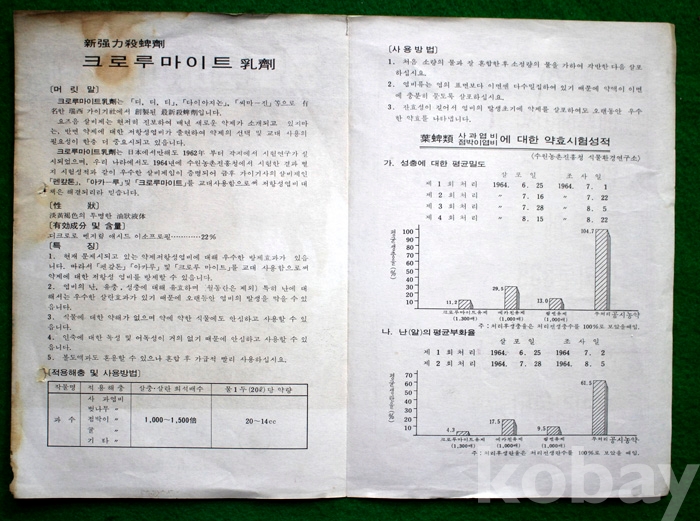 新强力殺蜱劑
크로루마이트 乳劑
[머 릿 말]
크로루마이트乳劑는 「디, 디, 티」, 「다이아지논」, 「씨마-진」等으로 有
名한 瑞西 가이기社에서 創製된 最新殺蜱劑입니다.
요즈음 살비제는 현저히 진보하여 매년 새로운 약제가 소개되고 있시마
는, 반면 약제에 대한 저항성엽비가 출현하여 약제의 선택 및 교대 사용의
필요성이 한층 더 중요시되고 있습니다.
크로루마이트乳劑는 日本에서만해도 1962年 부터 각지에서 시험연구가 실
시되었으며, 우리 나라에서도 1964년에 수원농촌진흥청에서 시험한 결과 별
지 시험성적과 같이 우수한 살비제임이 증명되어 금후 가이기사의 살비제인
「렌칼돈」, 「아카-루」 및 「크로루마이트」를 교대사용함으로써 저항성엽비 대
책은 해결되리라 믿습니다.
[性 狀]
淡黃褐色의 투명한 油狀液体
[有効成分 및 含量]
디크로로 벤저릴 애시드 이소프로필…………22%
[特 징]
1. 현재 문제시되고 있는 약제저항성엽비에 대해 우수한 방제효과가 있읍
니다. 따라서 「렌칼돈」 「아카루」 및 「크로루 마이트」를 교대 사용함으로써
약제에 대한 저항성 엽비를 방제할 수 있습니다.
2. 엽비의 난, 유충, 성충에 대해 유효하며 특히 난에 대
해서는 우수한 살란효과가 있기 때문에 오랫동안 엽비의 발생을 막을 수 있
읍니다.
3. 식물에 대한 약해가 없으며 약에 약한 식물에도 안심하고 사용할 수 있
읍니다.
4. 인축에 대한 독성 및 어독성이 거의 없기 때문에 안심하고 사용할 수 있
읍니다.
5. 볼도액과도 혼용할 수 있으나 혼합 후 가급적 빨리 사용하십시요.
[적용해충 및 사용방법]
작물명 적 용 해 충 살충·살란 희석배수 물 1 두 (20ℓ) 당 약량
과 수 사 과엽비 1,000~1,500倍 20~14cc
벗나무 〃
점박이 〃
귤 〃
기 타 〃
[사 용 방 법]
1. 처음 소량의 물과 잘 혼합한 후 소정량의 물을 가하여 작반한 다음 살포
하십시요.
2. 엽비류는 엽의 표면보다 이면에 다수밀집하여 있기 때문에 약액이 이면
에 충분히 묻도록 살포하십시요.
3. 잔효성이 길어서 엽비의 발생초기에 약제를 살포하여도 오랫동안 우수
한 약효를 나타냅니다.
葉蜱類 사과엽비 점박이엽비 에 대한 약효시험성적
(수원농촌진흥청 식물환경연구소)
가. 성충에 대한 평균밀도
살 포 일 조 사 일
제 1 회 처 리 1964. 6. 25 1964. 7. 1
제 2 회 처 리 〃 7. 16 〃 7. 22
제 3 회 처 리 〃 7. 28 〃 8. 5
제 4 회 처 리 〃 8. 15 〃 8. 22
100
90
80
70
60
50
40
30
20
10
11.2 29.5 13.0 104.7
크로루마이트유제 메카린유제 켈센유제 무처리 공시농약
(1,300배) (1,000배) (1,000배)
주 : 처리후생충율은 처리전생충수를 100%로 보았을때임.
나. 난(알)의 평균부화율
살 포 일 조 사 일
제 1 회 처 리 1964. 6. 25 1964. 7. 2
제 2 회 처 리 1964. 7. 28 1964. 8. 5
70
60
50
40
30
20
10
4.3 17.5 9.5 61.5
크로루마이트유제 메카린유제 켈센유제 무처리 공시농약
(1,300배) (1,000배) (1,000배)
주 : 처리후생란율은 처리전생란수를 100%로 보았을 때임.
kobay